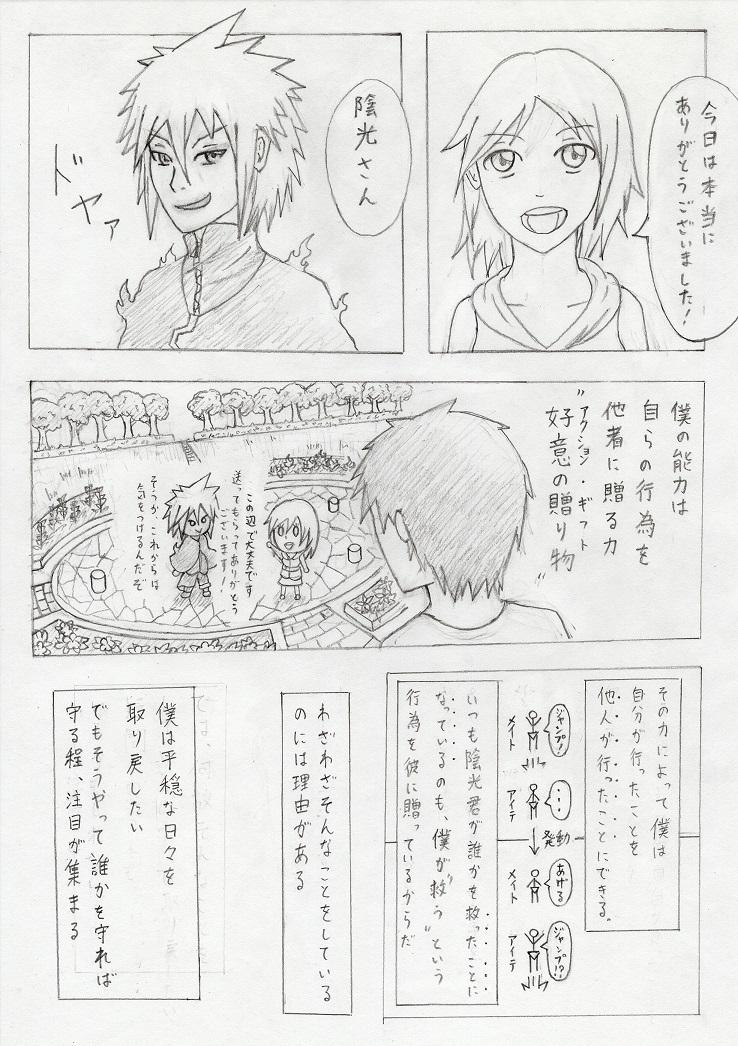 今日は本当に
ありがとうございました!
陰光さん
ドヤァ
僕の能力は
自らの行為を
他者に贈る力
アクション・ギフト
"好意の贈り物"
この辺で大丈夫です
送ってもらってありがとう
ございます!
そうか、これからは
気をつけるんだぞ
その力によって僕は
自分が行ったことを
他人が行ったことにできる。
ジャンプ!
メイト
・・・
アイテ
発動
あげる
メイト
ジャンプ!?
アイテ
いつも陰光君が誰かを救ったことに
なっているのも、僕が"救う"という
行為を彼に贈っているからだ
わざわざそんなことをしている
のには理由がある
僕は平穏な日々を
取り戻したい
でもそうやって誰かを守れば
守る程、注目が集まる